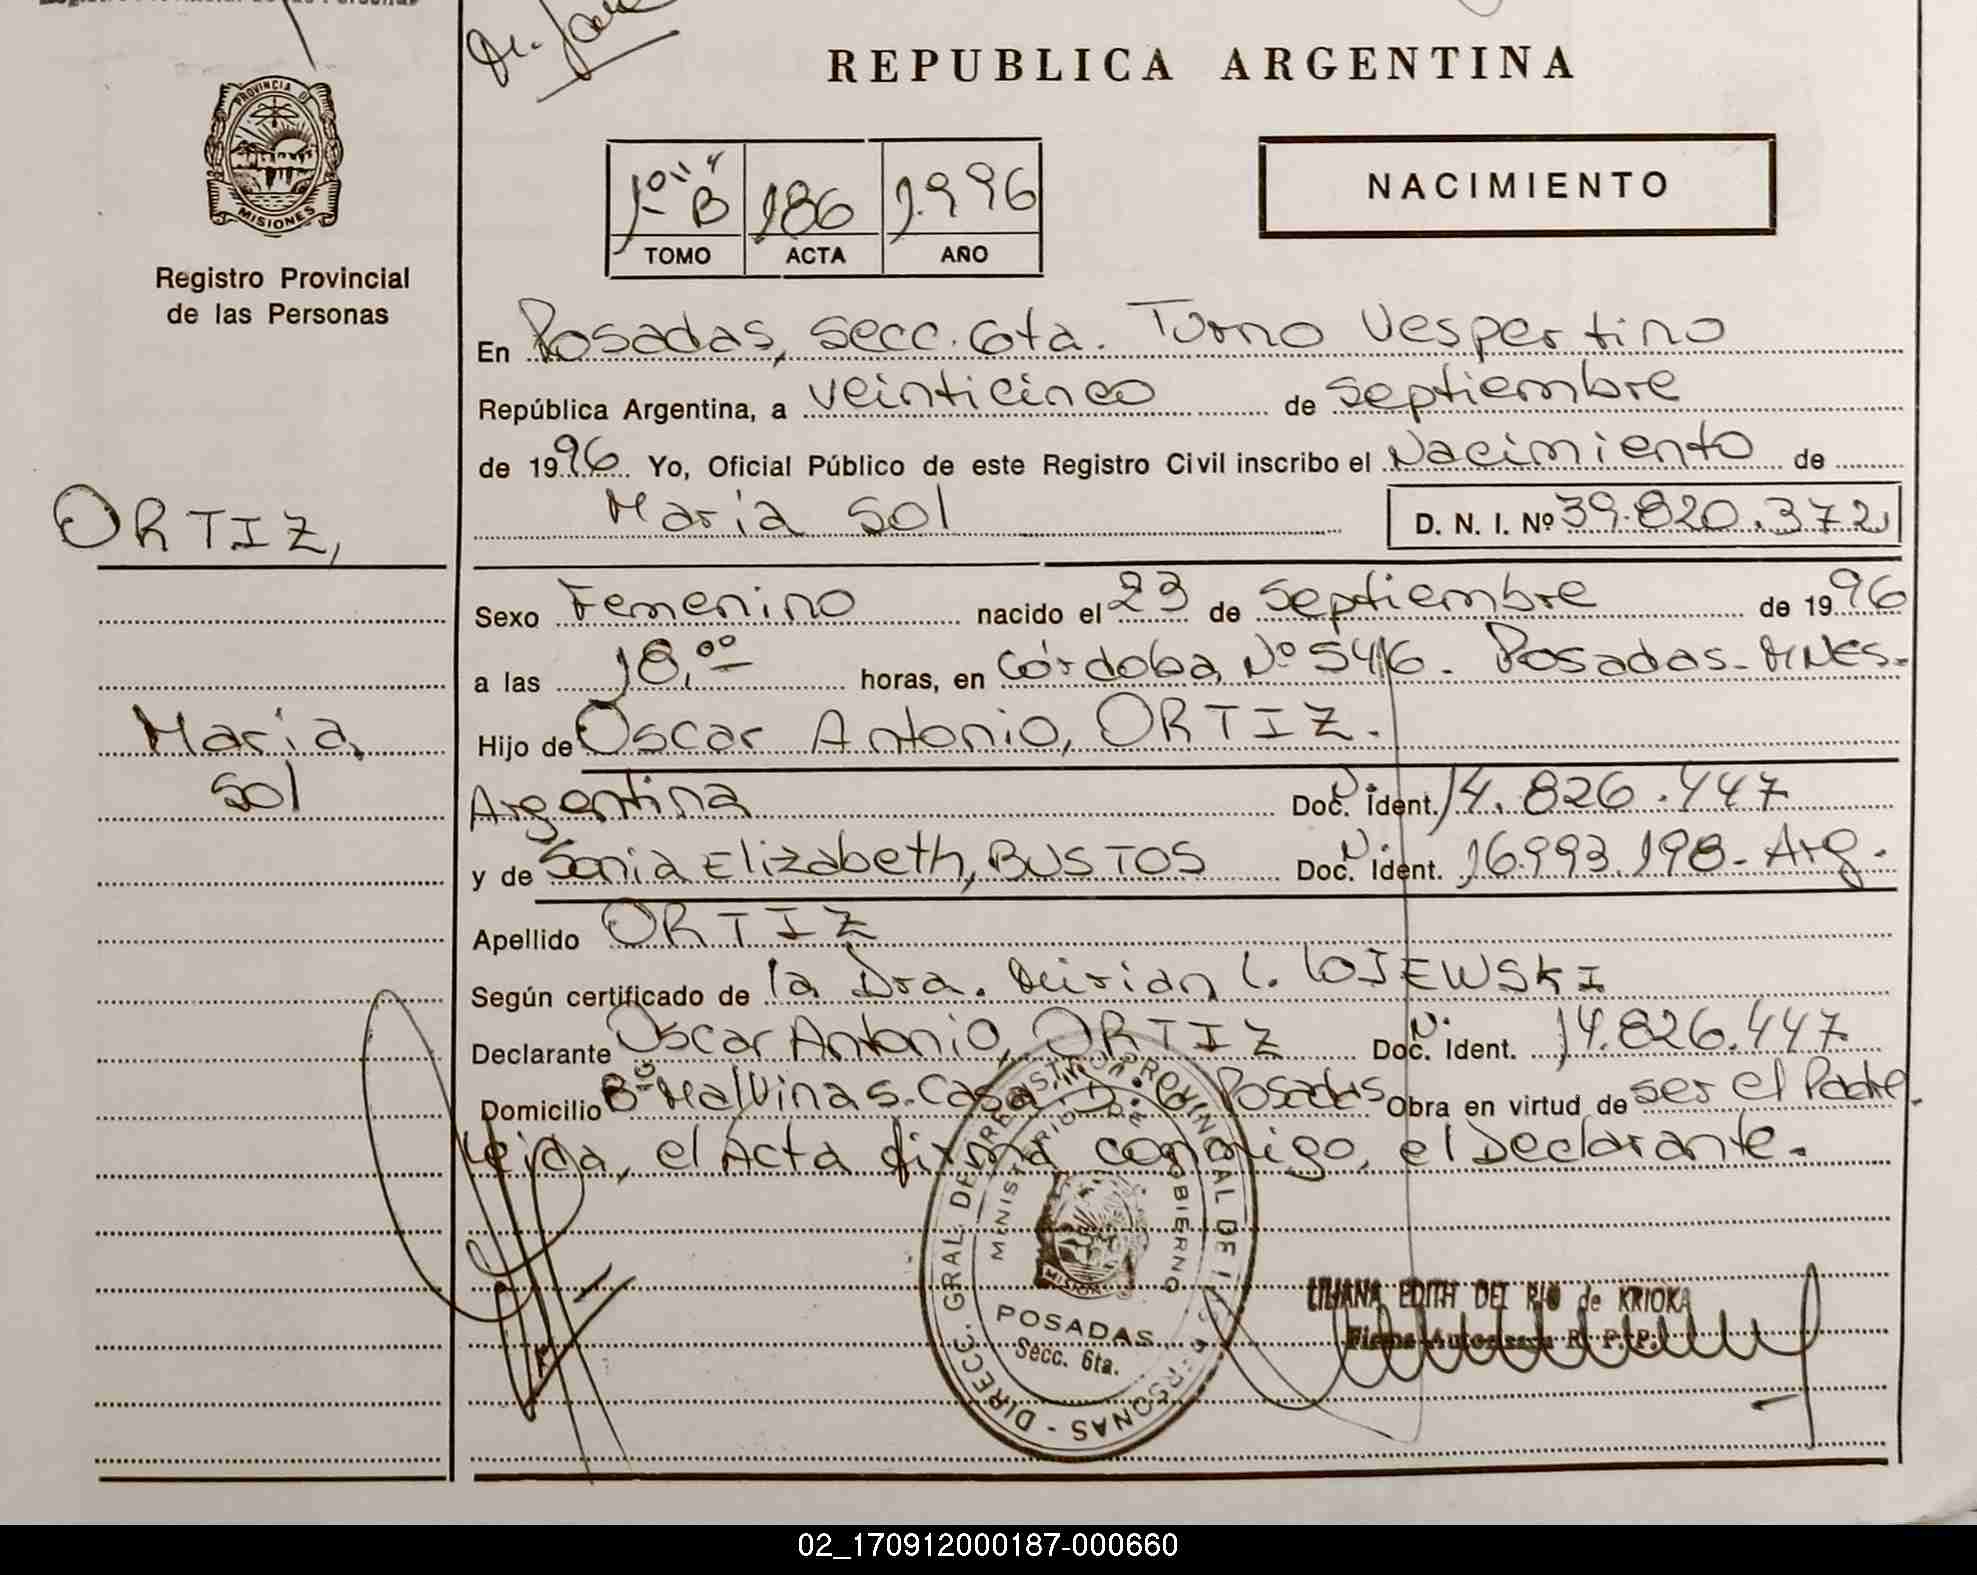 REPUBLICA ARGENTINA
PROVINCIA D
MISIONES
Registro Provincial
de las Personas
1º "B" 186 1.996
TOMO ACTA AÑO
NACIMIENTO
En Posadas, Secc. 6ta. Turno Vespertino
República Argentina, a veinticinco de septiembre
de 1996 Yo, Oficial Público de este Registro Civil inscribo el Nacimiento de
María Sol D. N. I. Nº 39.820.372
ORTIZ,
María
Sol
Sexo Femenino nacido el 23 de Septiembre de 1996
a las 18,00 horas, en Córdoba Nº 5416. Posadas- MNes.
Hijo de Oscar Antonio, ORTIZ.
Argentina Doc. Ident. 14.826.447
y de Sonia Elizabeth, BUSTOS Doc. Ident. 16.993.198- Arg.
Apellido ORTIZ
Según certificado de la Dra. Mirian L. LOJEWSKI
Declarante Oscar Antonio, ORTIZ Doc. Ident. 14.826.447
Domicilio Bº Malvinas. Casa Posadas Obra en virtud de ser el Padre.
Leída, el Acta firma conmigo, el Declarante.
DIRECC. GRAL. DEL REGISTRO PROVINCIAL DE LAS PERSONAS -
MINISTERIO DE GOBIERNO
POSADAS
Secc. 6ta.
LILIANA EDITH DEL RIO de KRIOKA
Firma Autorizada R. P. P.
02_170912000187-000660